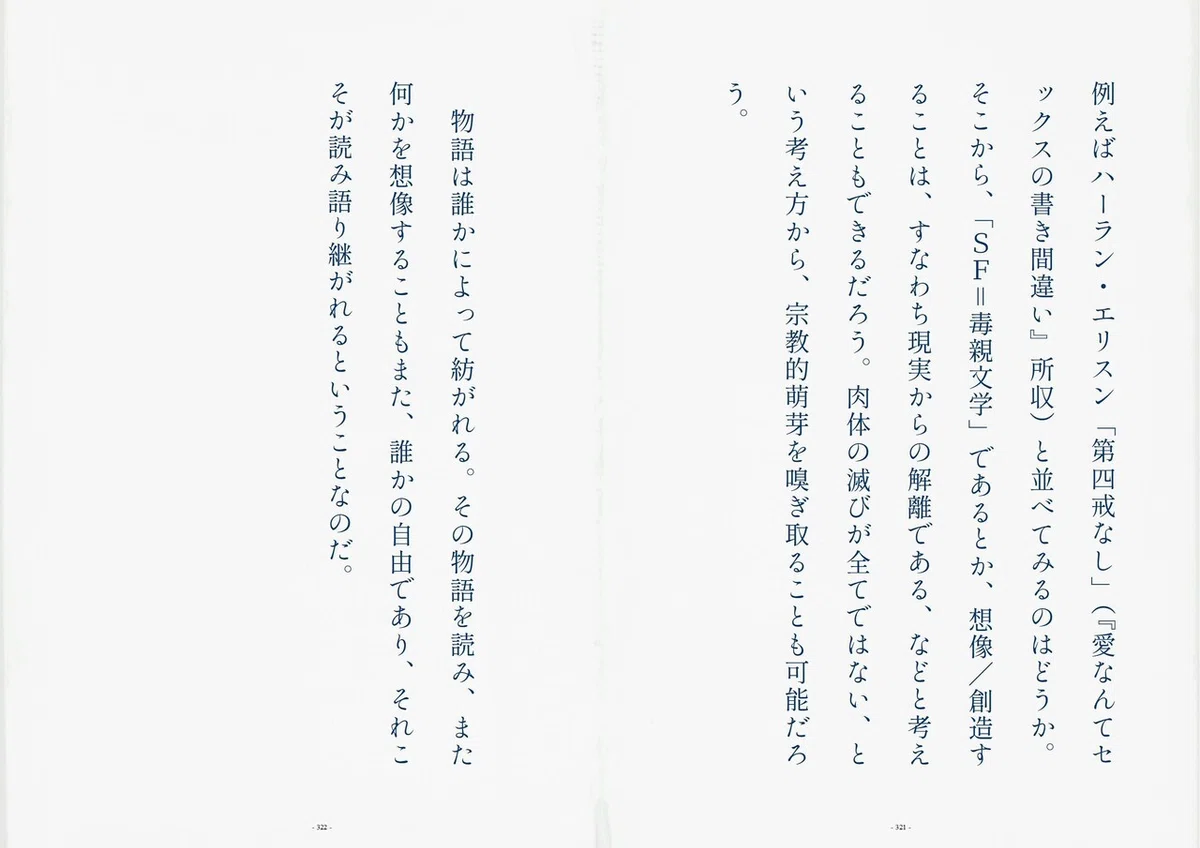 例えばハーラン・エリスン「第四戒なし」（『愛なんてセ
ックスの書き間違い』所収）と並べてみるのはどうか。
そこから、「ＳＦ＝毒親文学」であるとか、想像／創造す
ることは、すなわち現実からの解離である、などと考え
ることもできるだろう。肉体の滅びが全てではない、と
いう考え方から、宗教的萌芽を嗅ぎ取ることも可能だろ
う。
- 321 -
　物語は誰かによって紡がれる。その物語を読み、また
何かを想像することもまた、誰かの自由であり、それこ
そが読み語り継がれるということなのだ。
- 322 -